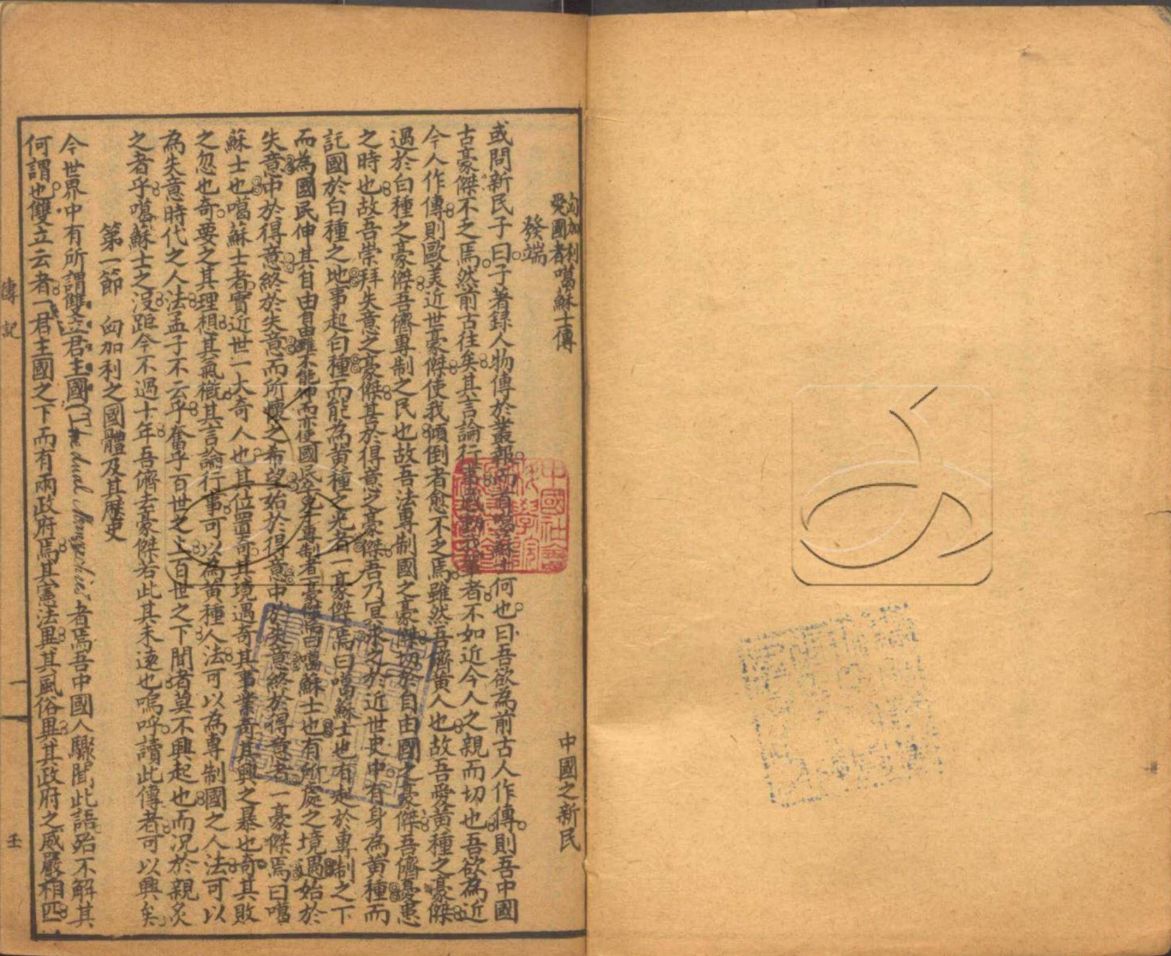 匈加利
愛國者噶蘇士傳
中國之新民
發端
或問新民子曰子著錄人物傳於叢報而首噶蘇士何也曰吾欲為前古人作傳則吾中國
古豪傑不乏焉然前古往矣其言論行事感動者不如近今人之親而切也吾欲為近
今人作傳則歐美近世豪傑使我傾倒者愈不乏焉雖然吾儕黃人也故吾愛黃種之豪傑
過於白種之豪傑吾儕專制之民也故吾法專制國之豪傑切於自由國之豪傑吾儕憂患
之時也故吾崇拜失意之豪傑甚於得意之豪傑吾乃冥求之於近世史中有身為黃種而
託國於白種之地事起白種而能為黃種之光者一豪傑焉曰噶蘇士也有起於專制之下
而為國民伸其自由自由雖不能伸而亦使國民免於專制者一豪傑焉曰噶蘇士也有所處之境遇始於
失意中於得意終於失意而所懷之希望始於得意中於失意終於得意者一豪傑焉曰噶
蘇士也噶蘇士者實近世一大奇人也其位置奇其境遇奇其事業奇其興之暴也奇其敗
之忽也奇要之其理想其氣概其言論行事可以為黃種人法可以為專制國之人法可以
為失意時代之人法孟子不云乎奮乎百世之上百世之下聞者莫不興起也而況於親炙
之者乎噶蘇士之沒距今不過十年吾儕去豪傑若此其未遠也嗚呼讀此傳者可以興矣
第一節 匈加利之國體及其歷史
今世界中有所謂雙立君主國「The dual Monarchies」者焉吾中國人驟聞此語殆不解其
何謂也雙立云者「君主國之下而有兩政府焉其憲法異其風俗異其政府之威嚴相匹
傳記
一
壬